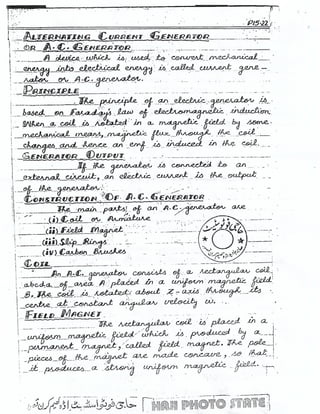 P15-22
ALTERNATING CURRENT GENERATOR
OR A.C. GENERATOR
A device which is used to convert mechanical
energy into electrical energy is called current gene-
rator or A.C. generator.
PRINCIPLE
The principle of an electric generator is
based on Faraday's law of electromagnetic induction
When a coil is rotated in a magnetic field by some
mechanical means, magnetic flux through the coil
changes and hence an emf is induced in the coil.
GENERATOR OUTPUT
If the generator is connected to an
external circuit, an electric current is the output
of the generator.
CONSTRUCTION OF A.C. GENERATOR
The main parts of an A.C. generator are
(i) Coil or Armature
(ii) Field Magnet
(iii) Slip Rings
(iv) Carbon Brushes
COIL
An A.C. generator consists of a rectangular coil
abcda of area A placed in a uniform magnetic field
B. The coil is rotated about Z-axis through its
centre at constant angular velocity ω.
FIELD MAGNET
The rectangular coil is placed in a
uniform magnetic field which is produced by a
permanent magnet, called field magnet. The pole
pieces of the magnet are made concave, so that
it produces a strong uniform magnetic field.
HAN PHOTO STATE